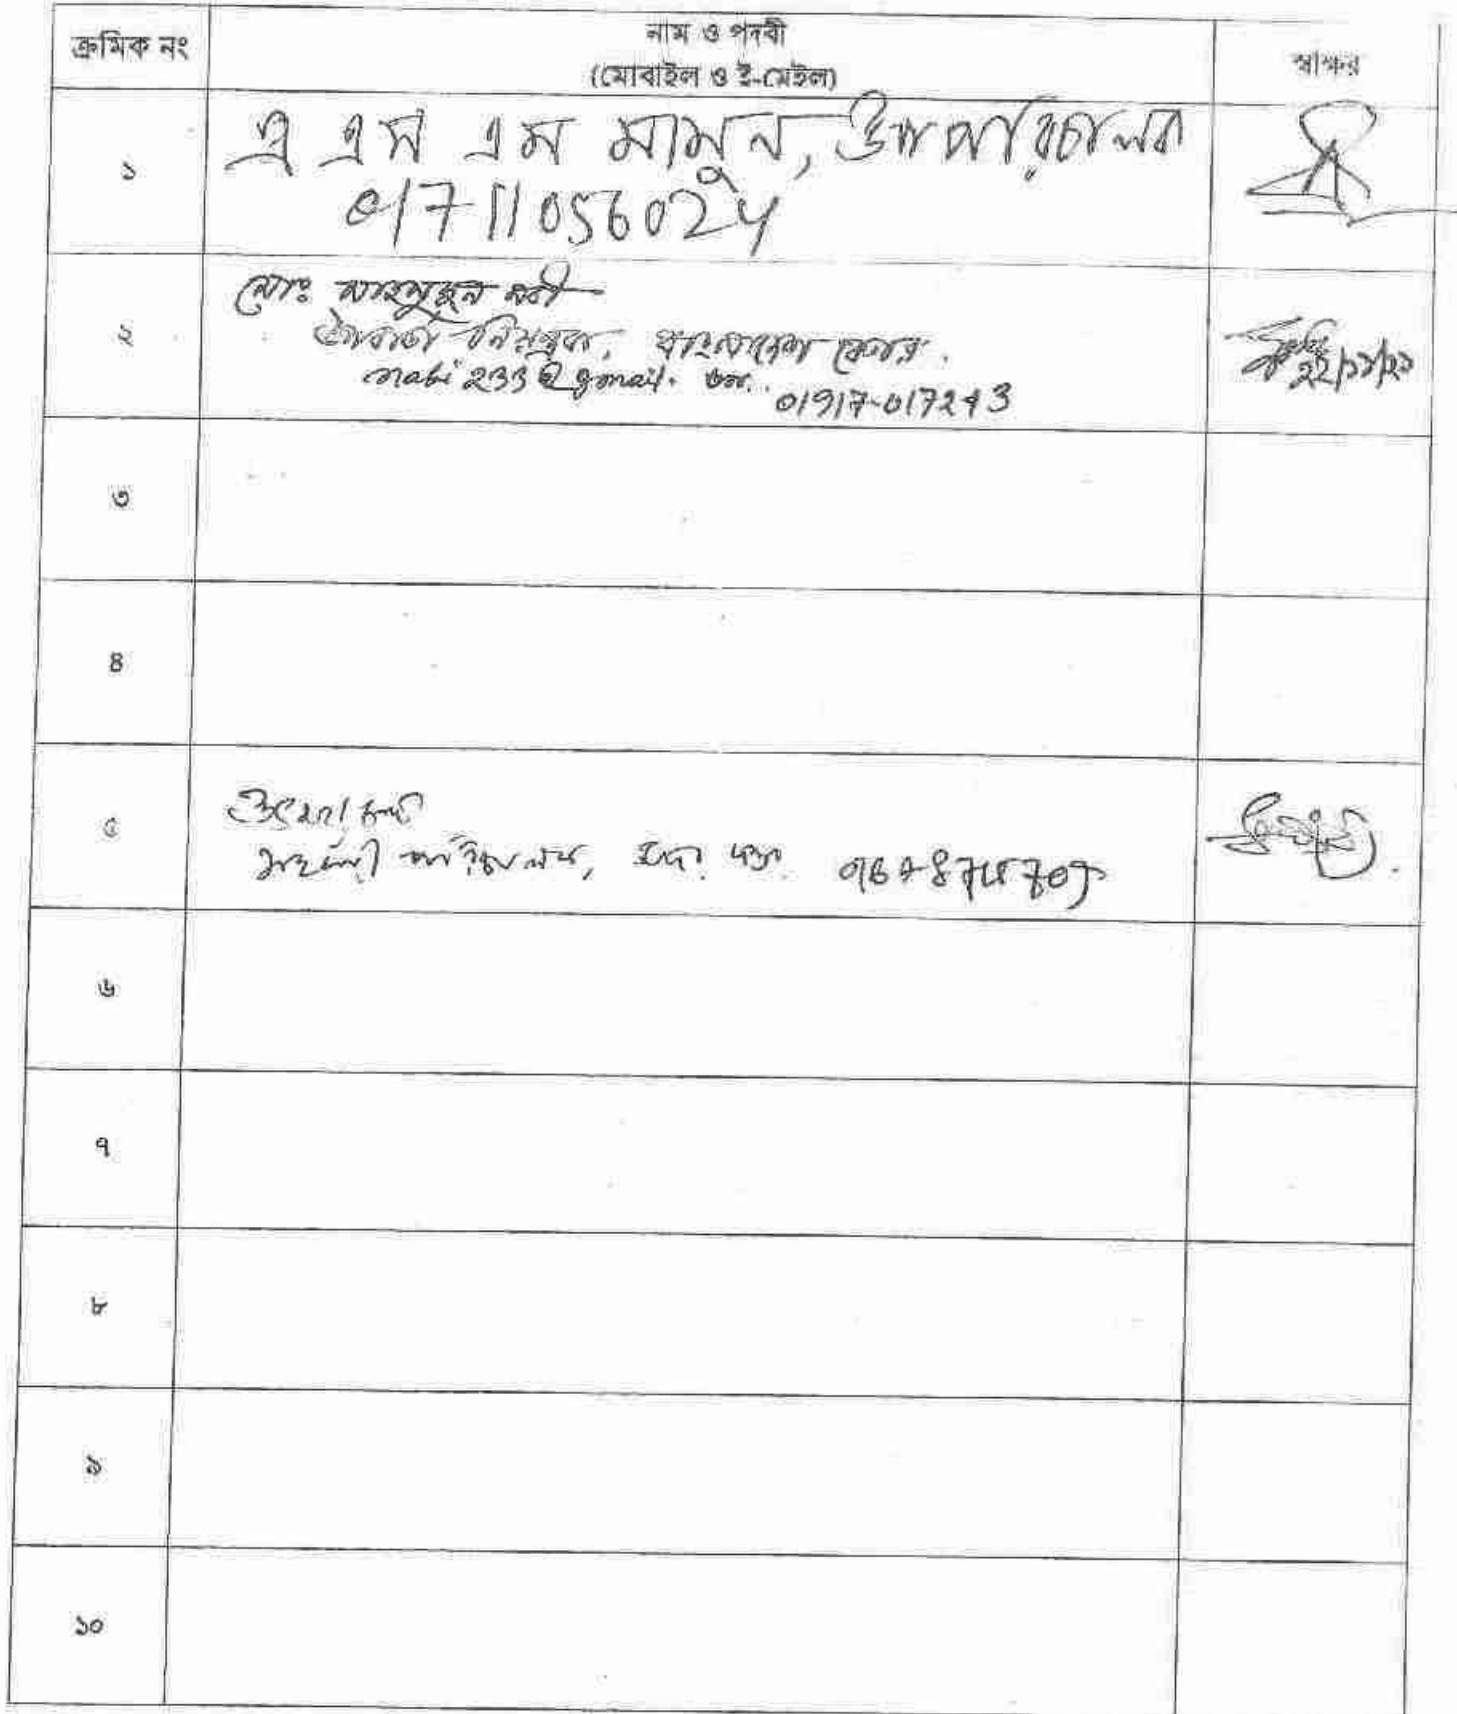 ক্রমিক নং
নাম ও পদবী
(মোবাইল ও ই-মেইল)
স্বাক্ষর
১
এ এস এম মামুন, উপপরিচালক
01711056024
২
মোঃ মাহমুদুন নবী
উপবার্তা নিয়ন্ত্রক, বাংলাদেশ বেতার.
nabi233@gmail.
01917-017243
২২/১১/২১
৩
৪
৫
সহকারী পরিচালক,
৬
৭
৮
৯
১০